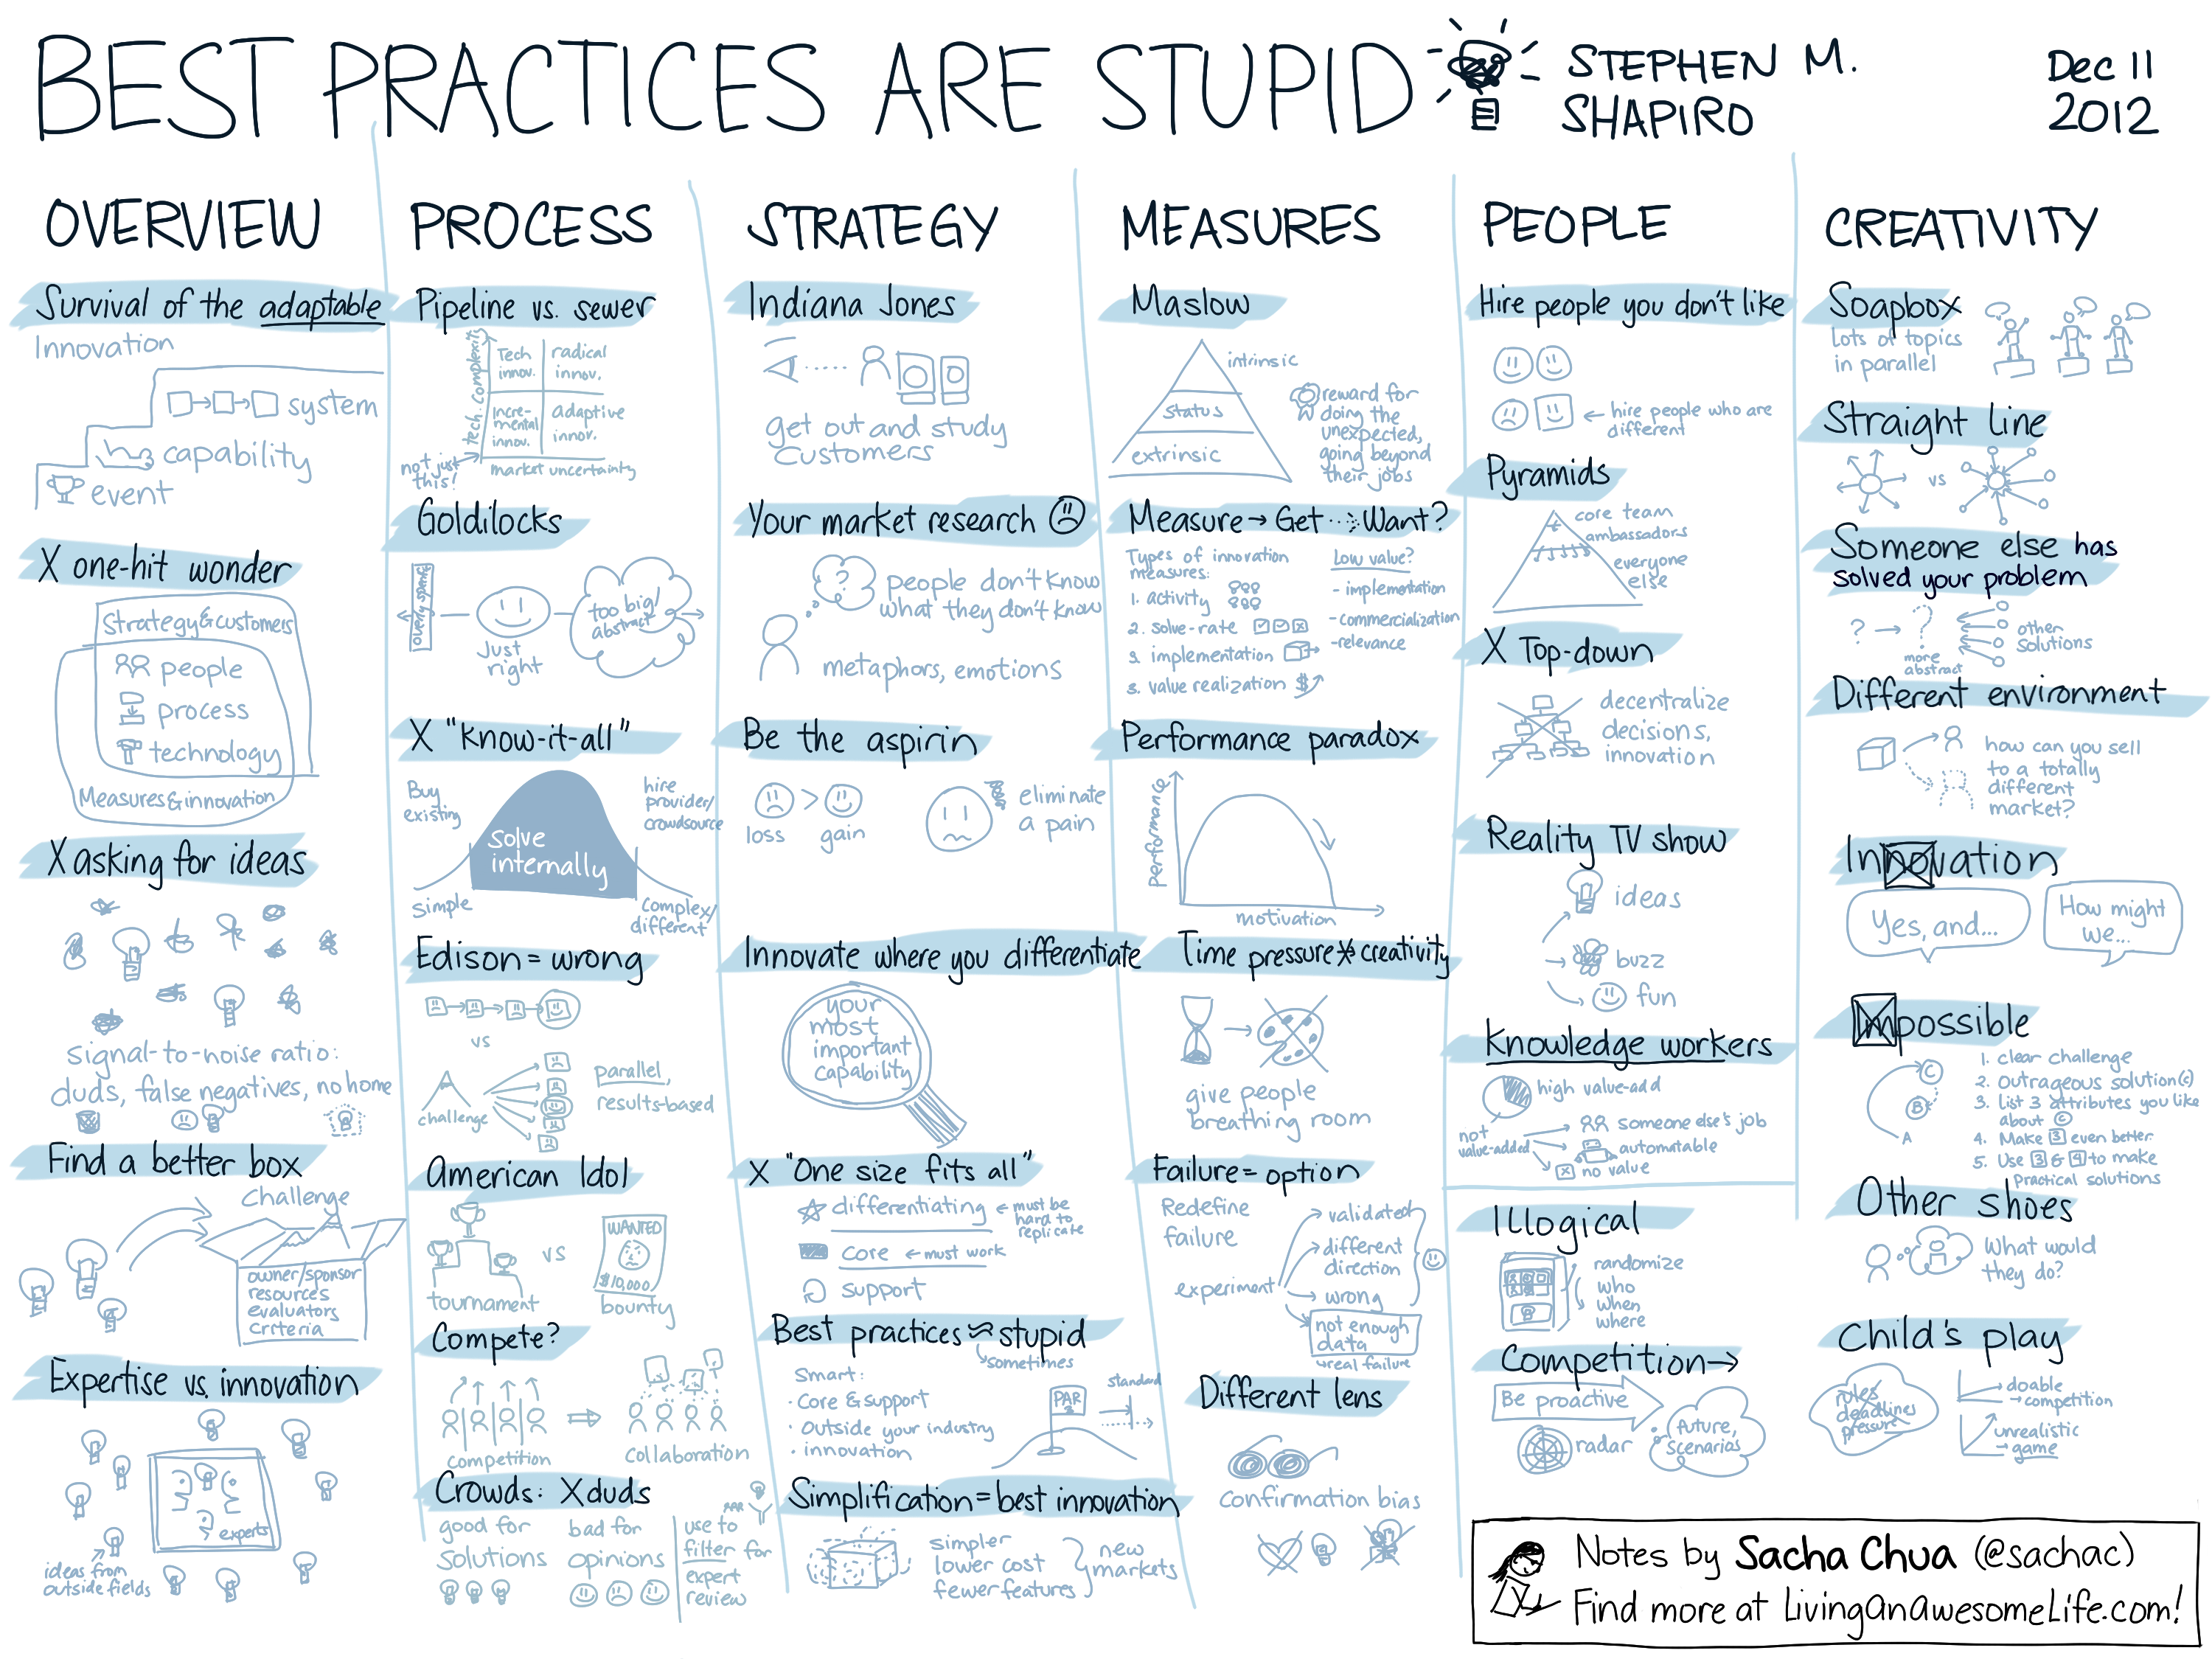 BEST PRACTICES ARE STUPID
STEPHEN M.
SHAPIRO
Dec 11
2012
OVERVIEW
Survival of the adaptable
Innovation
system
capability
event
X one-hit wonder
Strategy & customers
people
process
technology
Measures & innovation
X asking for ideas
signal-to-noise ratio:
duds, false negatives, no home
Find a better box
Challenge
owner/sponsor
resources
evaluators
Criteria
Expertise vs. innovation
experts
ideas from
outside fields
PROCESS
Pipeline vs. sewer
tech. complexity
Tech
innov.
radical
innov.
Incre-
mental
innov.
adaptive
innov.
not just
this!
market uncertainty
Goldilocks
overly specific
Just
right
too big/
abstract
X "know-it-all"
Buy
existing
hire
provider/
crowdsource
Solve
internally
simple
complex/
different
Edison = wrong
vs
challenge
parallel,
results-based
American Idol
tournament
vs
WANTED
$10,000
bounty
Compete?
competition
collaboration
Crowds: X duds
good for
solutions
bad for
opinions
use to
filter for
expert
review
STRATEGY
Indiana Jones
get out and study
customers
Your market research
?
people don't know
what they don't know
metaphors, emotions
Be the aspirin
loss
>
gain
eliminate
a pain
Innovate where you differentiate
your
most
important
capability
X "One size fits all"
differentiating
must be
hard to
replicate
core
must work
support
Best practices ≈ stupid
sometimes
Smart:
· Core & support
· Outside your industry
· innovation
PAR
3
standard
Simplification = best innovation
simpler
lower cost
fewer features
new
markets
MEASURES
Maslow
intrinsic
status
extrinsic
reward for
doing the
unexpected,
going beyond
their jobs
Measure → Get ··> Want?
Types of innovation
measures:
1. activity
2. solve-rate
3. implementation
3. value realization $
Low value?
- implementation
- commercialization
- relevance
Performance paradox
Performance
motivation
Time pressure creativity
give people
breathing room
Failure = option
Redefine
failure
experiment
validated
different
direction
wrong
not enough
data
real failure
Different lens
confirmation bias
PEOPLE
Hire people you don't like
hire people who are
different
Pyramids
core team
ambassadors
everyone
else
X Top-down
decentralize
decisions,
innovation
Reality TV show
ideas
buzz
fun
Knowledge workers
high value-add
not
value-added
someone else's job
automatable
no value
Illogical
randomize
who
when
where
Competition →
Be proactive
radar
future,
scenarios
CREATIVITY
Soapbox
Lots of topics
in parallel
Straight line
vs
Someone else has
solved your problem
? → ?
more
abstract
other
solutions
Different environment
how can you sell
to a totally
different
market?
Innovation
Yes, and...
How might
we...
Impossible
A
B
C
1. clear challenge
2. outrageous solution (c)
3. List 3 attributes you like
about C
4. Make 3 even better
5. Use 3 & 4 to make
practical solutions
Other shoes
What would
they do?
Child's play
rules
deadlines
pressure
doable
→ competition
unrealistic
→ game
Notes by Sacha Chua (@sachac)
Find more at LivingAnAwesomeLife.com!